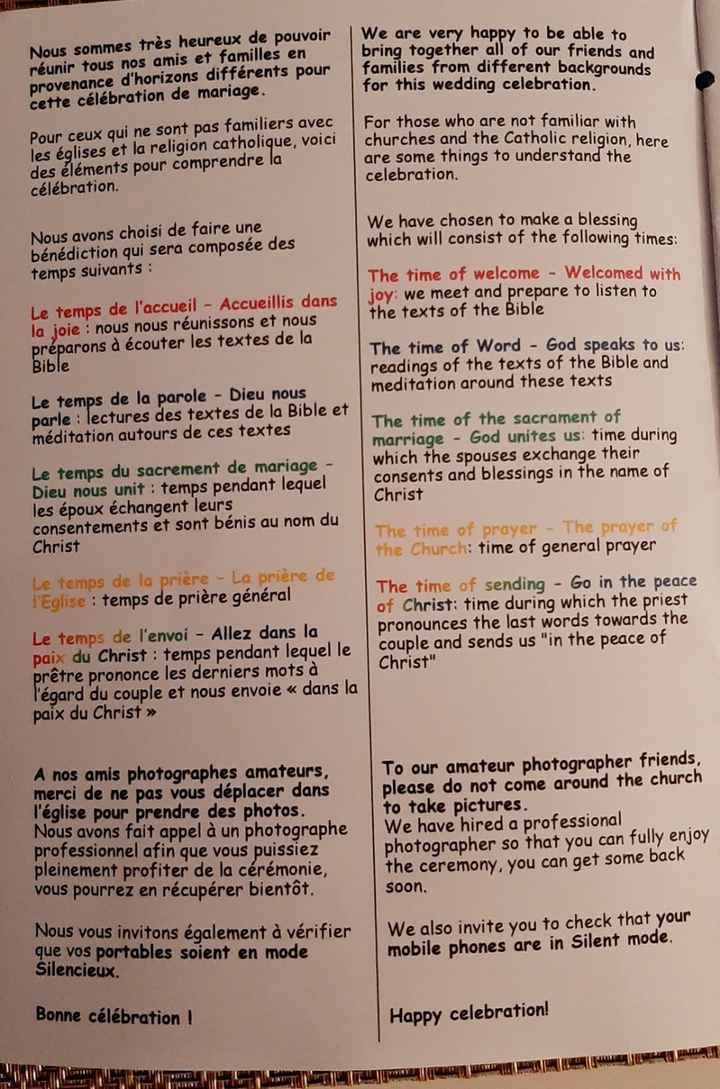 Nous sommes très heureux de pouvoir
réunir tous nos amis et familles en
provenance d'horizons différents pour
cette célébration de mariage.
Pour ceux qui ne sont pas familiers avec
les églises et la religion catholique, voici
des éléments pour comprendre la
célébration.
Nous avons choisi de faire une
bénédiction qui sera composée des
temps suivants :
Le temps de l'accueil – Accueillis dans
la joie : nous nous réunissons et nous
préparons à écouter les textes de la
Bible
Le temps de la parole – Dieu nous
parle : lectures des textes de la Bible et
méditation autours de ces textes
Le temps du sacrement de mariage –
Dieu nous unit : temps pendant lequel
les époux échangent leurs
consentements et sont bénis au nom du
Christ
Le temps de la prière – La prière de
l'Eglise : temps de prière général
Le temps de l'envoi – Allez dans la
paix du Christ : temps pendant lequel le
prêtre prononce les derniers mots à
l'égard du couple et nous envoie « dans la
paix du Christ »
A nos amis photographes amateurs,
merci de ne pas vous déplacer dans
l'église pour prendre des photos.
Nous avons fait appel à un photographe
professionnel afin que vous puissiez
pleinement profiter de la cérémonie,
vous pourrez en récupérer bientôt.
Nous vous invitons également à vérifier
que vos portables soient en mode
Silencieux.
Bonne célébration !
We are very happy to be able to
bring together all of our friends and
families from different backgrounds
for this wedding celebration.
For those who are not familiar with
churches and the Catholic religion, here
are some things to understand the
celebration.
We have chosen to make a blessing
which will consist of the following times:
The time of welcome - Welcomed with
joy: we meet and prepare to listen to
the texts of the Bible
The time of Word - God speaks to us:
readings of the texts of the Bible and
meditation around these texts
The time of the sacrament of
marriage - God unites us: time during
which the spouses exchange their
consents and blessings in the name of
Christ
The time of prayer - The prayer of
the Church: time of general prayer
The time of sending - Go in the peace
of Christ: time during which the priest
pronounces the last words towards the
couple and sends us "in the peace of
Christ"
To our amateur photographer friends,
please do not come around the church
to take pictures.
We have hired a professional
photographer so that you can fully enjoy
the ceremony, you can get some back
soon.
We also invite you to check that your
mobile phones are in Silent mode.
Happy celebration!